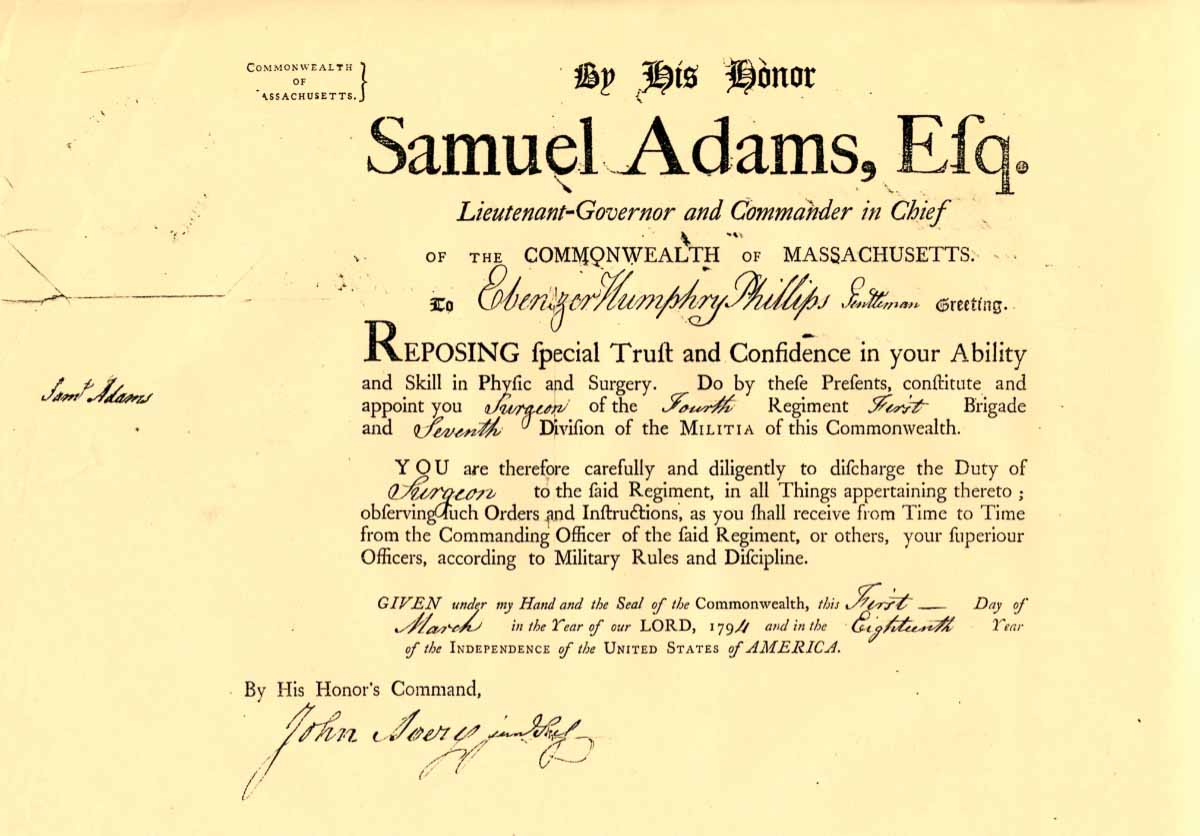 COMMONWEALTH
OF
ASSACHUSETTS.
By His Honor
Samuel Adams, Eſq.
Lieutenant-Governor and Commander in Chief
OF THE COMMONWEALTH OF MASSACHUSETTS.
To Ebenezer Humphry Phillips Gentleman Greeting.
REPOSING ſpecial Truſt and Confidence in your Ability
and Skill in Phyſic and Surgery. Do by theſe Preſents, conſtitute and
Sam.l Adams
appoint you Surgeon of the Fourth Regiment First Brigade
and Seventh Diviſion of the MILITIA of this Commonwealth.
YOU are therefore carefully and diligently to diſcharge the Duty of
Surgeon to the ſaid Regiment, in all Things appertaining thereto ;
obſerving ſuch Orders and Inſtructions, as you ſhall receive from Time to Time
from the Commanding Officer of the ſaid Regiment, or others, your ſuperiour
Officers, according to Military Rules and Diſcipline.
GIVEN under my Hand and the Seal of the Commonwealth, this First — Day of
March in the Year of our LORD, 1794 and in the Eighteenth Year
of the INDEPENDENCE of the UNITED STATES of AMERICA.
By His Honor's Command,
John Avery jun.r Sec.y